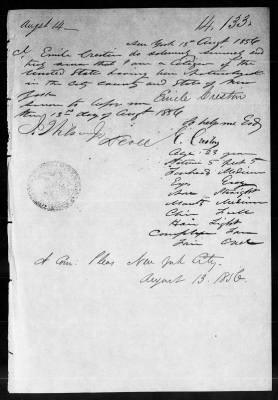 Augst 14
14.133
New York 13th Augt 1856
I Emile Creston do solemnly sworn and
truly swear that I am a Citizen of the
United States having been naturalized
in the City County and State of New
York So help me God
Sworn to before me Emile Creston
this 13th day of August 1856
E. Creston
Age 23 years
Stature 5 feet 5
Forehead Medium
Eyes Gray
Nose Straight
Mouth Medium
Chin Full
Hair Light
Complexion Fair
Face Oval
Com. Pleas New York City.
August 13. 1856.